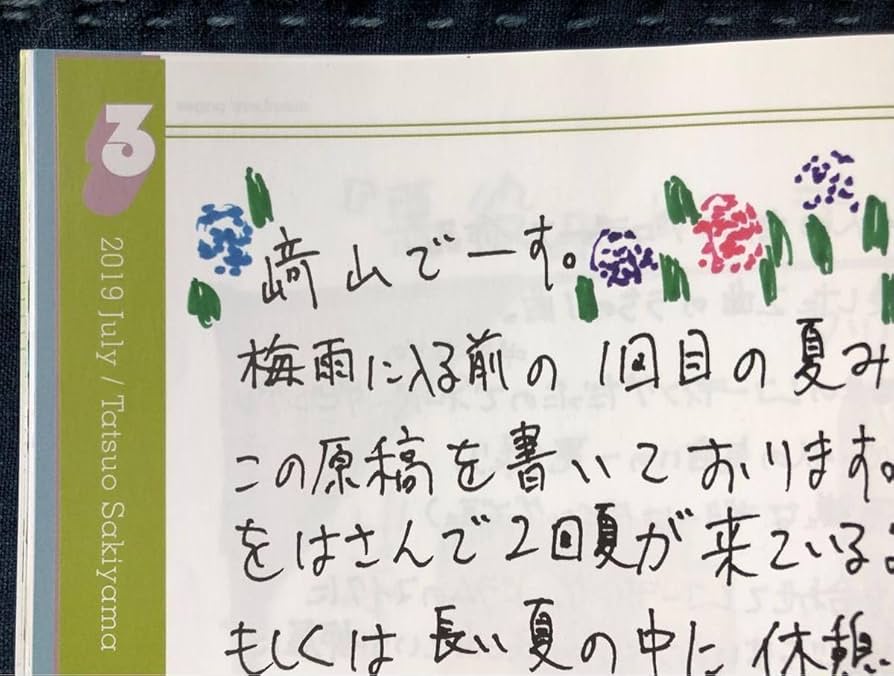 3
2019 July / Tatsuo Sakiyama
﨑山でーす。
梅雨に入る前の1回目の夏み
この原稿を書いております。
をはさんで2回夏が来ている
もしくは長い夏の中に休憩